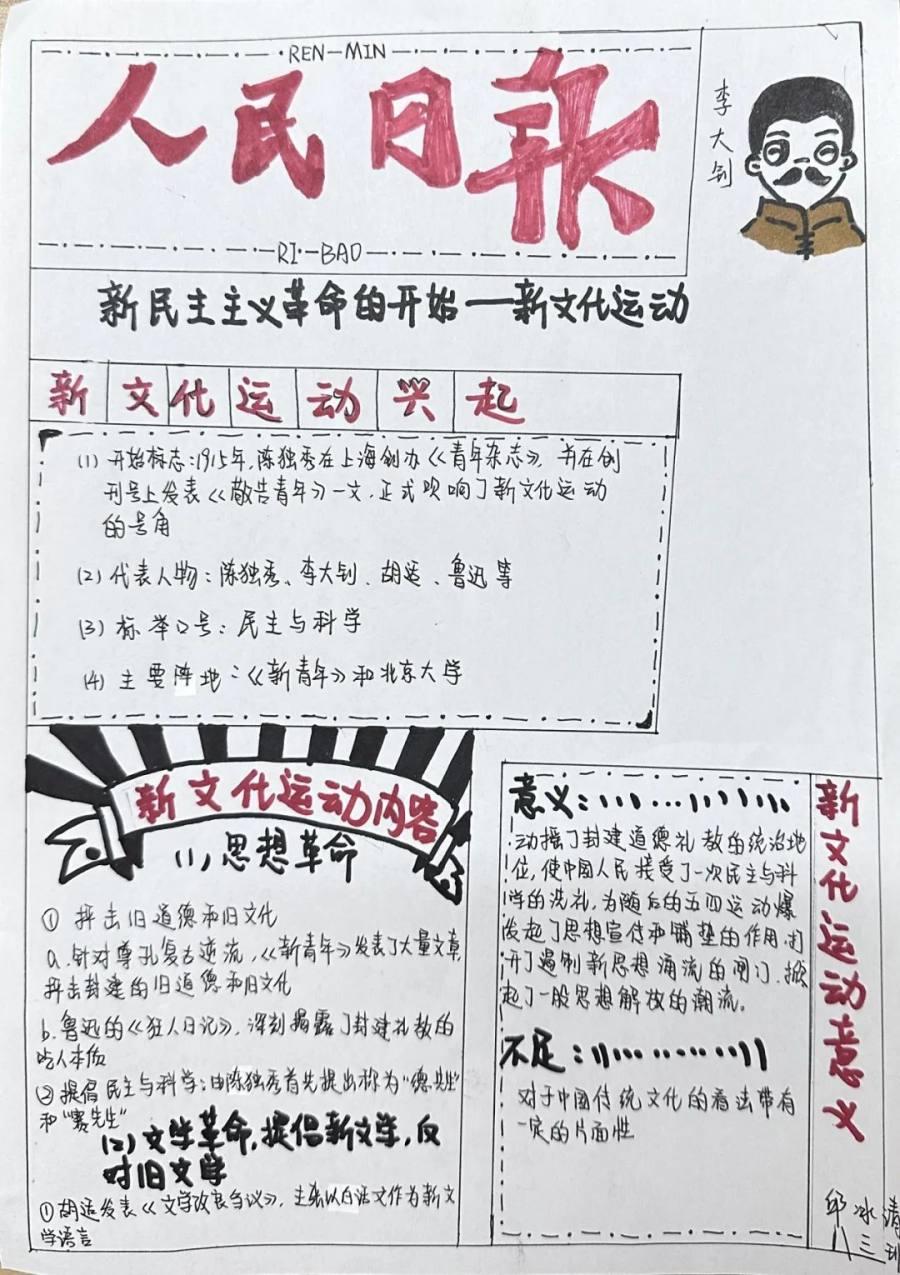 REN-MIN
人民日报
RI-BAO
李大钊
新民主主义革命的开始——新文化运动
新文化运动兴起
(1) 开始标志:1915年,陈独秀在上海创办《青年杂志》,并在创
刊号上发表《敬告青年》一文,正式吹响了新文化运动
的号角
(2) 代表人物:陈独秀、李大钊、胡适、鲁迅等
(3) 标举口号:民主与科学
(4) 主要阵地:《新青年》和北京大学
新文化运动内容
(1),思想革命
① 抨击旧道德和旧文化
a.针对尊孔复古逆流,《新青年》发表了大量文章,
抨击封建的旧道德和旧文化
b.鲁迅的《狂人日记》,深刻揭露了封建礼教的
吃人本质
②提倡民主与科学:由陈独秀首先提出称为“德先生”
和“赛先生”
(2)文学革命,提倡新文学,反
对旧文学
①胡适发表《文学改良刍议》,主张以白话文作为新文
学语言
意义:
动摇了封建道德礼教的统治地
位,使中国人民接受了一次民主与科
学的洗礼,为随后的五四运动爆
发起了思想宣传和铺垫的作用.打
开了遏制新思想涌流的闸门,掀
起了一股思想解放的潮流.
不足:
对于中国传统文化的看法带有
一定的片面性
新文化运动意义
邱冰清
八三班